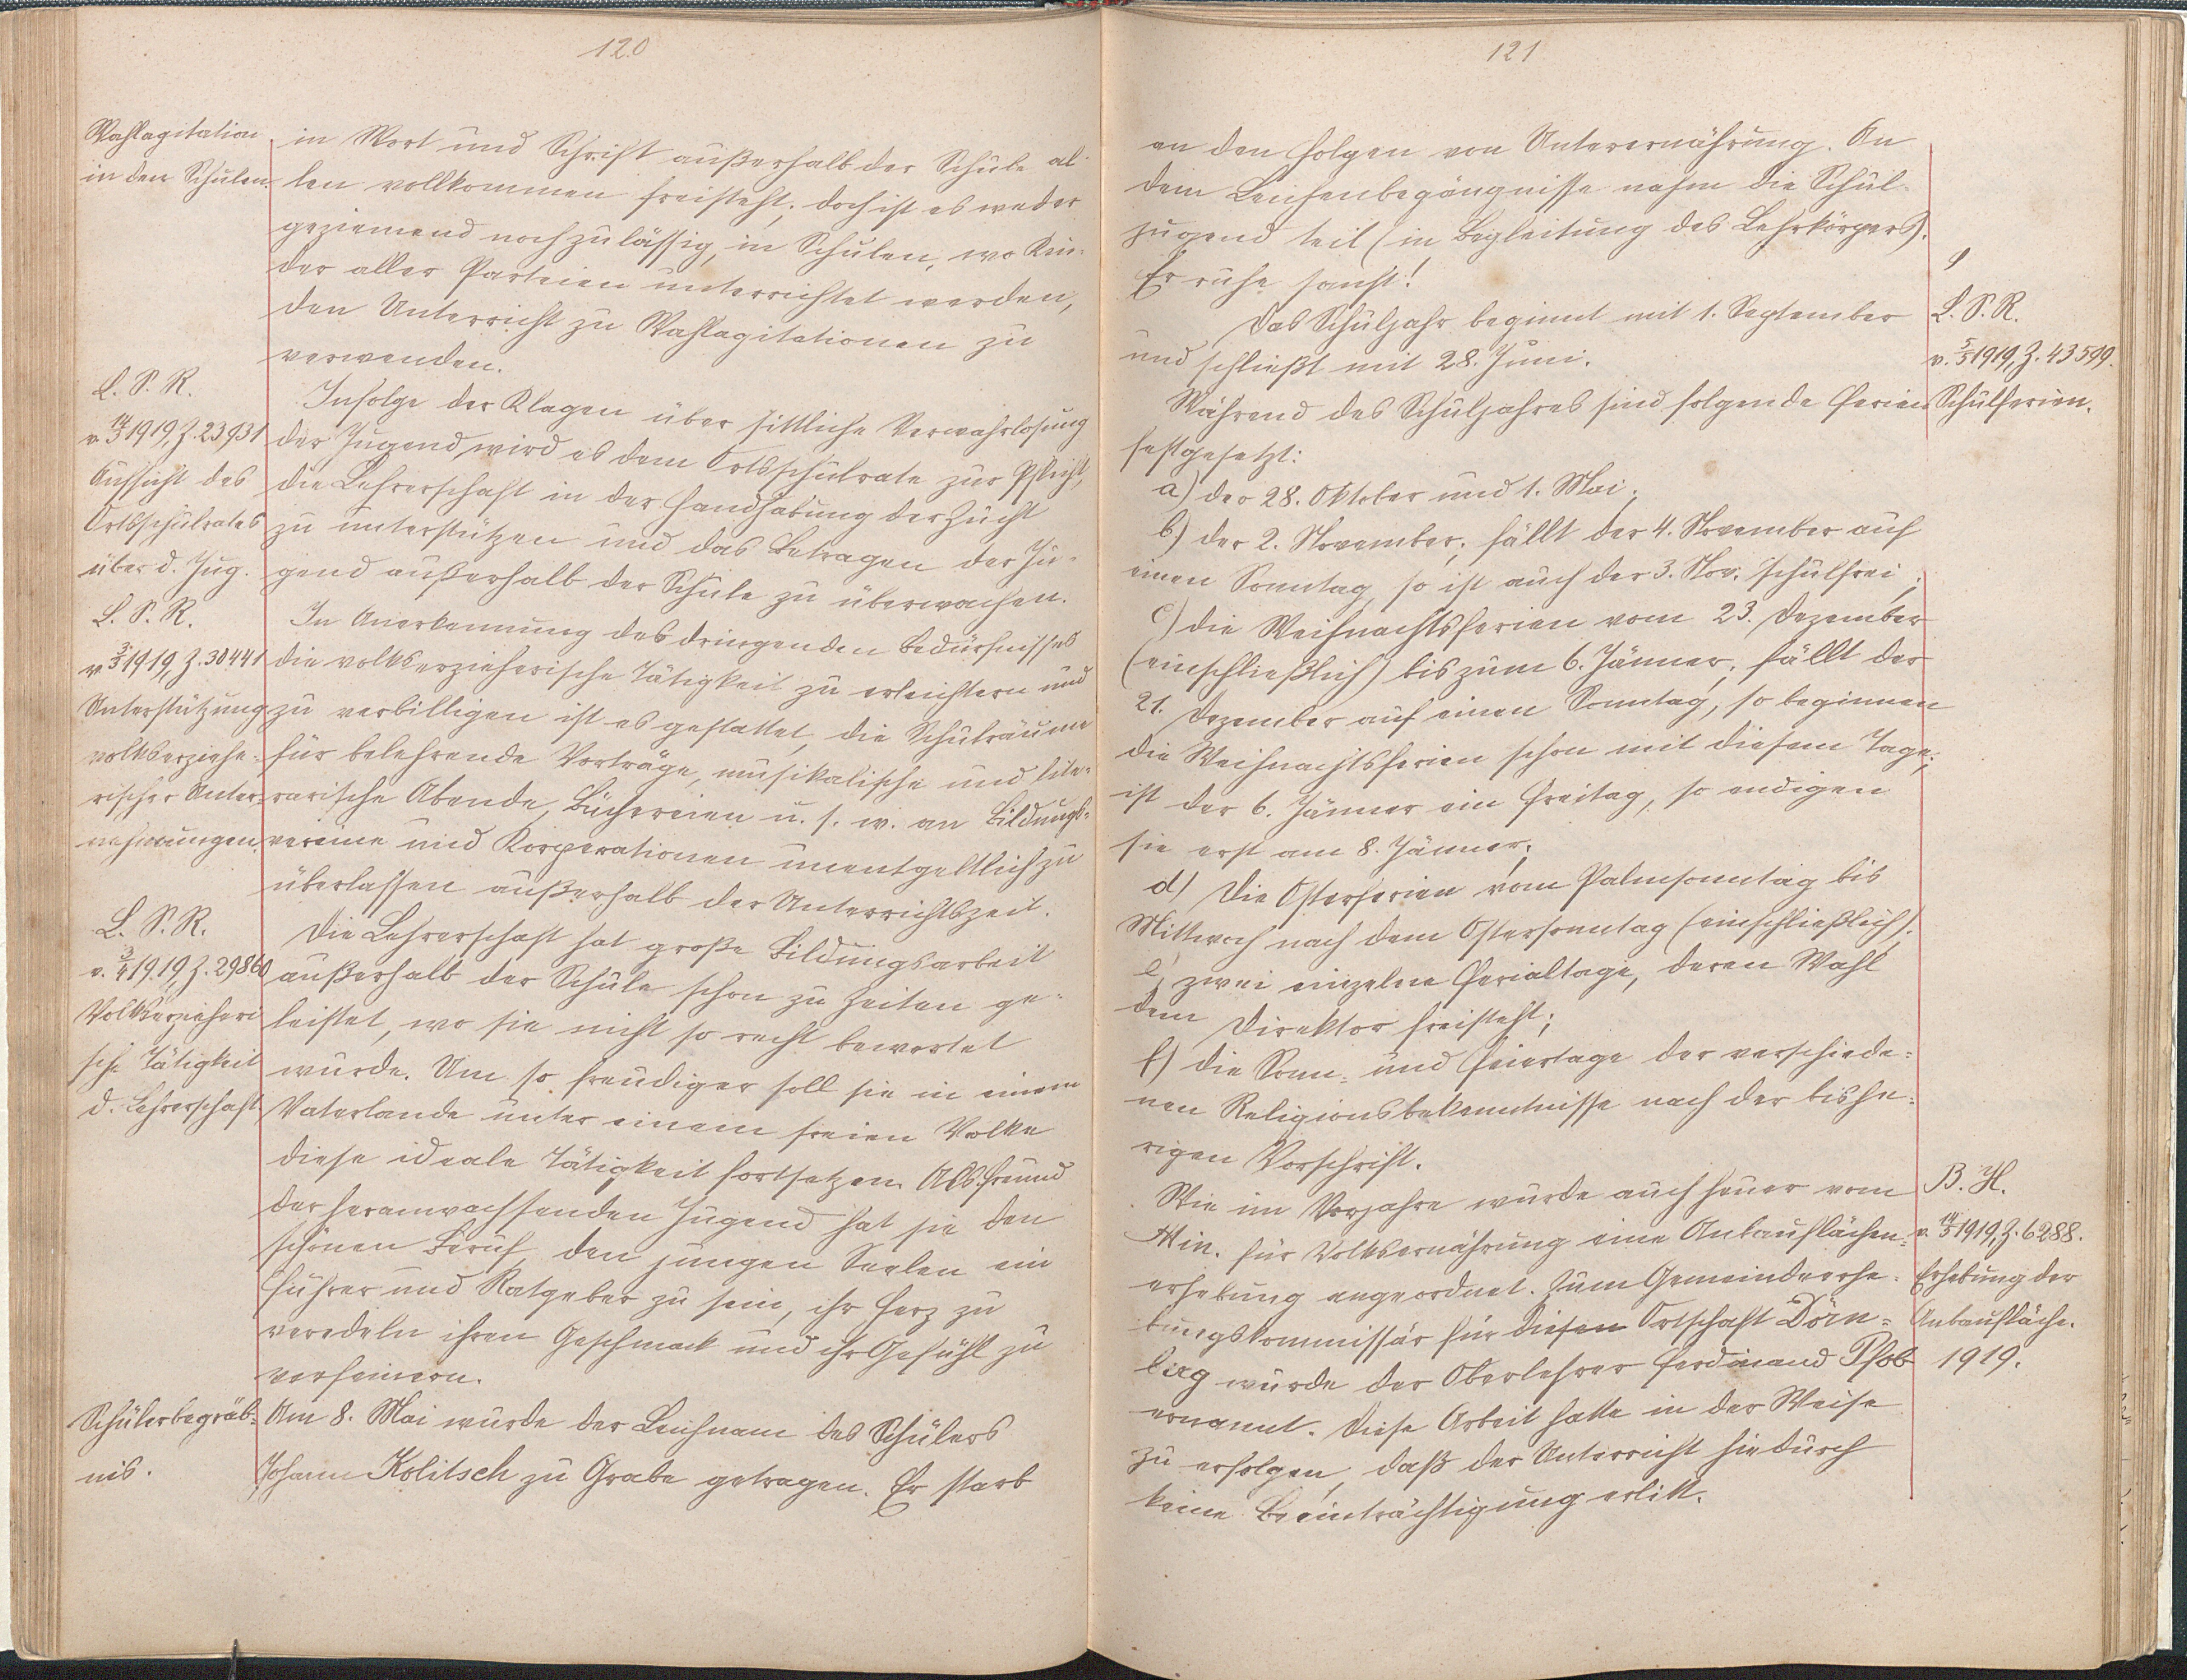 120
Wahlagitation
in den Schulen.
in Wort und Schrift außerhalb der Schule al-
len vollkommen freisteht, doch ist es weder
geziemend noch zulässig, in Schulen, wo Kin-
der aller Parteien unterrichtet werden,
den Unterricht zu Wahlagitationen zu
verwenden.
L. S. R.
v. 14/3 1919, Z. 23931
Aufsicht des
Ortsschulrates
über d. Jug.
Infolge der Klagen über sittliche Verwahrlosung
der Jugend wird es dem Ortsschulrate zur Pflicht,
die Lehrerschaft in der Handhabung der Zucht
zu unterstützen und das Betragen der Ju-
gend außerhalb der Schule zu überwachen.
L. S. R.
v. 3/5 1919, Z. 30441
Unterstützung
volkserziehe-
rischer Unter-
nehmungen.
In Anerkennung des dringenden Bedürfnisses
die volkserzieherische Tätigkeit zu erleichtern und
zu verbilligen ist es gestattet, die Schulräume
für belehrende Vorträge, musikalische und lite-
rarische Abende, Büchereien u. s. w. an Bildungs-
vereine und Korporationen unentgeltlich zu
überlassen außerhalb der Unterrichtszeit.
L. S. R.
v. 3/4 1919, Z. 29860
Volkserzieheri
sche Tätigkeit
d. Lehrerschaft
Die Lehrerschaft hat große Bildungsarbeit
außerhalb der Schule schon zu Zeiten ge-
leistet, wo sie nicht so recht bewertet
wurde. Um so freudiger soll sie in einem
Vaterlande unter einem freien Volke
diese ideale Tätigkeit fortsetzen. Als Freund
der heranwachsenden Jugend hat sie den
schönen Beruf, den jungen Seelen ein
Führer und Ratgeber zu sein, ihr Herz zu
veredeln ihren Geschmack und ihr Gefühl zu
verfeinern.
Schülerbegräb-
nis.
Am 8. Mai wurde der Leichnam des Schülers
Johann Kolitsch zu Grabe getragen. Er starb
121
an den Folgen von Unterernährung. An
dem Leichenbegängnisse nahm die Schul-
jugend teil (in Begleitung des Lehrkörpers).
Er ruhe sanft!
Das Schuljahr beginnt mit 1. September
und schließt mit 28. Juni.
Während des Schuljahres sind folgende Ferien
festgesetzt:
L. S. R.
v. 5/5 1919, Z. 43599.
Schulferien.
a) der 28. Oktober und 1. Mai;
b) der 2. November; fällt der 4. November auf
einen Sonntag, so ist auch der 3. Nov. schulfrei;
c) die Weihnachtsferien vom 23. Dezember
(einschließlich) bis zum 6. Jänner; fällt der
21. Dezember auf einen Sonntag, so beginnen
die Weihnachtsferien schon mit diesem Tage;
ist der 6. Jänner ein Freitag, so endigen
sie erst am 8. Jänner;
d) die Osterferien vom Palmsonntag bis
Mittwoch nach dem Ostersonntag (einschließlich);
e) zwei einzelne Ferialtage, deren Wahl
dem Direktor freisteht;
f) die Sonn- und Feiertage der verschiede-
nen Religionsbekenntnisse nach der bishe-
rigen Vorschrift.
Wie im Vorjahre wurde auch heuer vom
Min. für Volksernährung eine Anbauflächen-
erhebung angeordnet. Zum Gemeindeerhe-
bungskommissär für diesen Ortschaft Dörn-
berg wurde der Oberlehrer Ferdinand Pfob
ernannt. Diese Arbeit hatte in der Weise
zu erfolgen, daß der Unterricht hiedurch
keine Beeinträchtigung erlitt.
B. H.
v. 14/5 1919, Z. 6288.
Erhebung der
Anbaufläche.
1919.